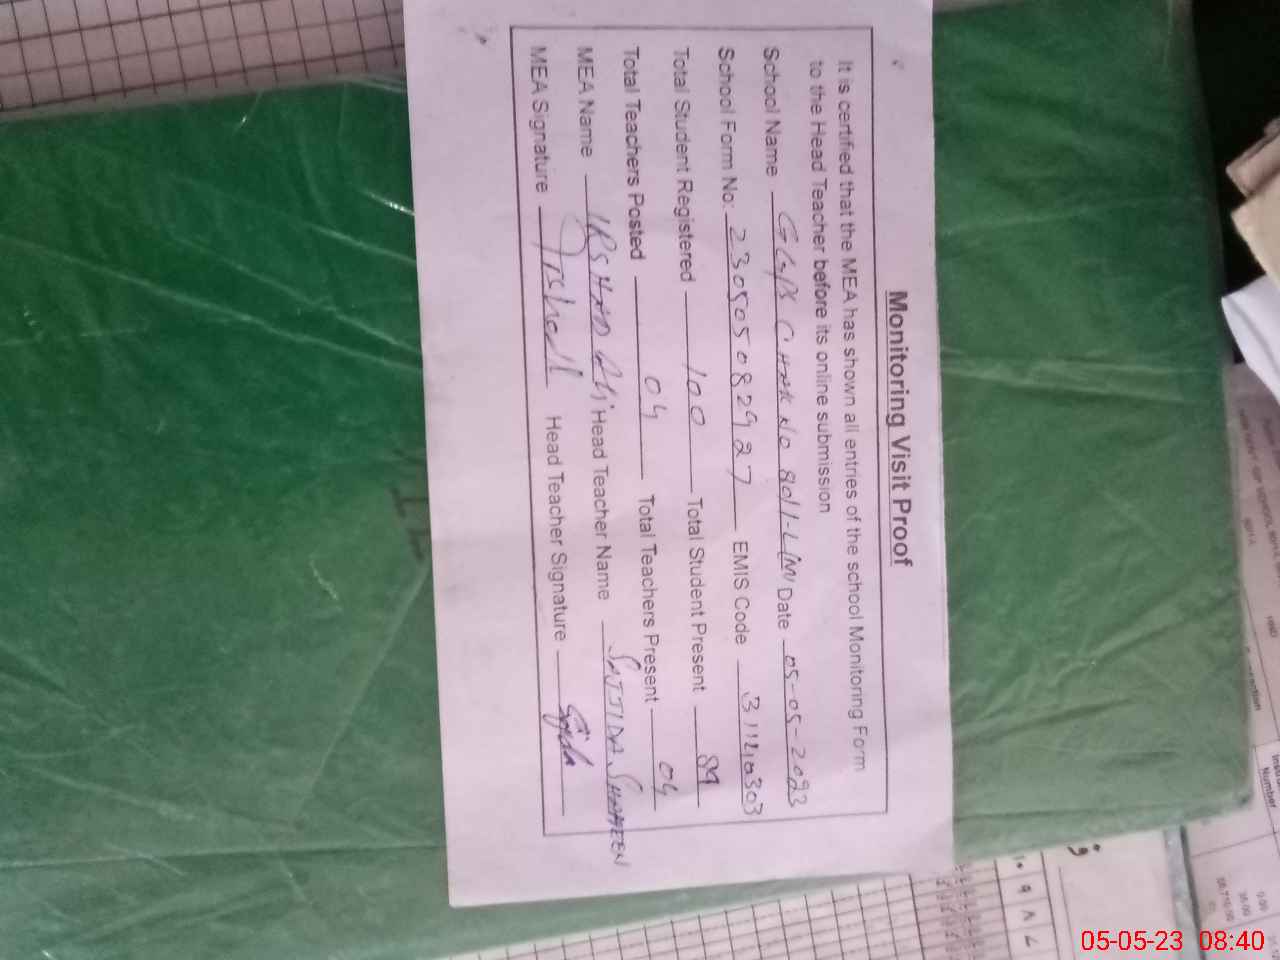 Monitoring Visit Proof
It is certified that the MEA has shown all entries of the school Monitoring Form
to the Head Teacher before its online submission
School Name CHAK NO 80/1-L Date 05-05-2023
School Form No. 230505082927 EMIS Code 31140303
Total Student Registered 100 Total Student Present 89
Total Teachers Posted 04 Total Teachers Present 04
MEA Name IRSHAD Ali Head Teacher Name SAJIDA SHAHEEN
MEA Signature Irshad Head Teacher Signature
Number
05-05-23 08:40